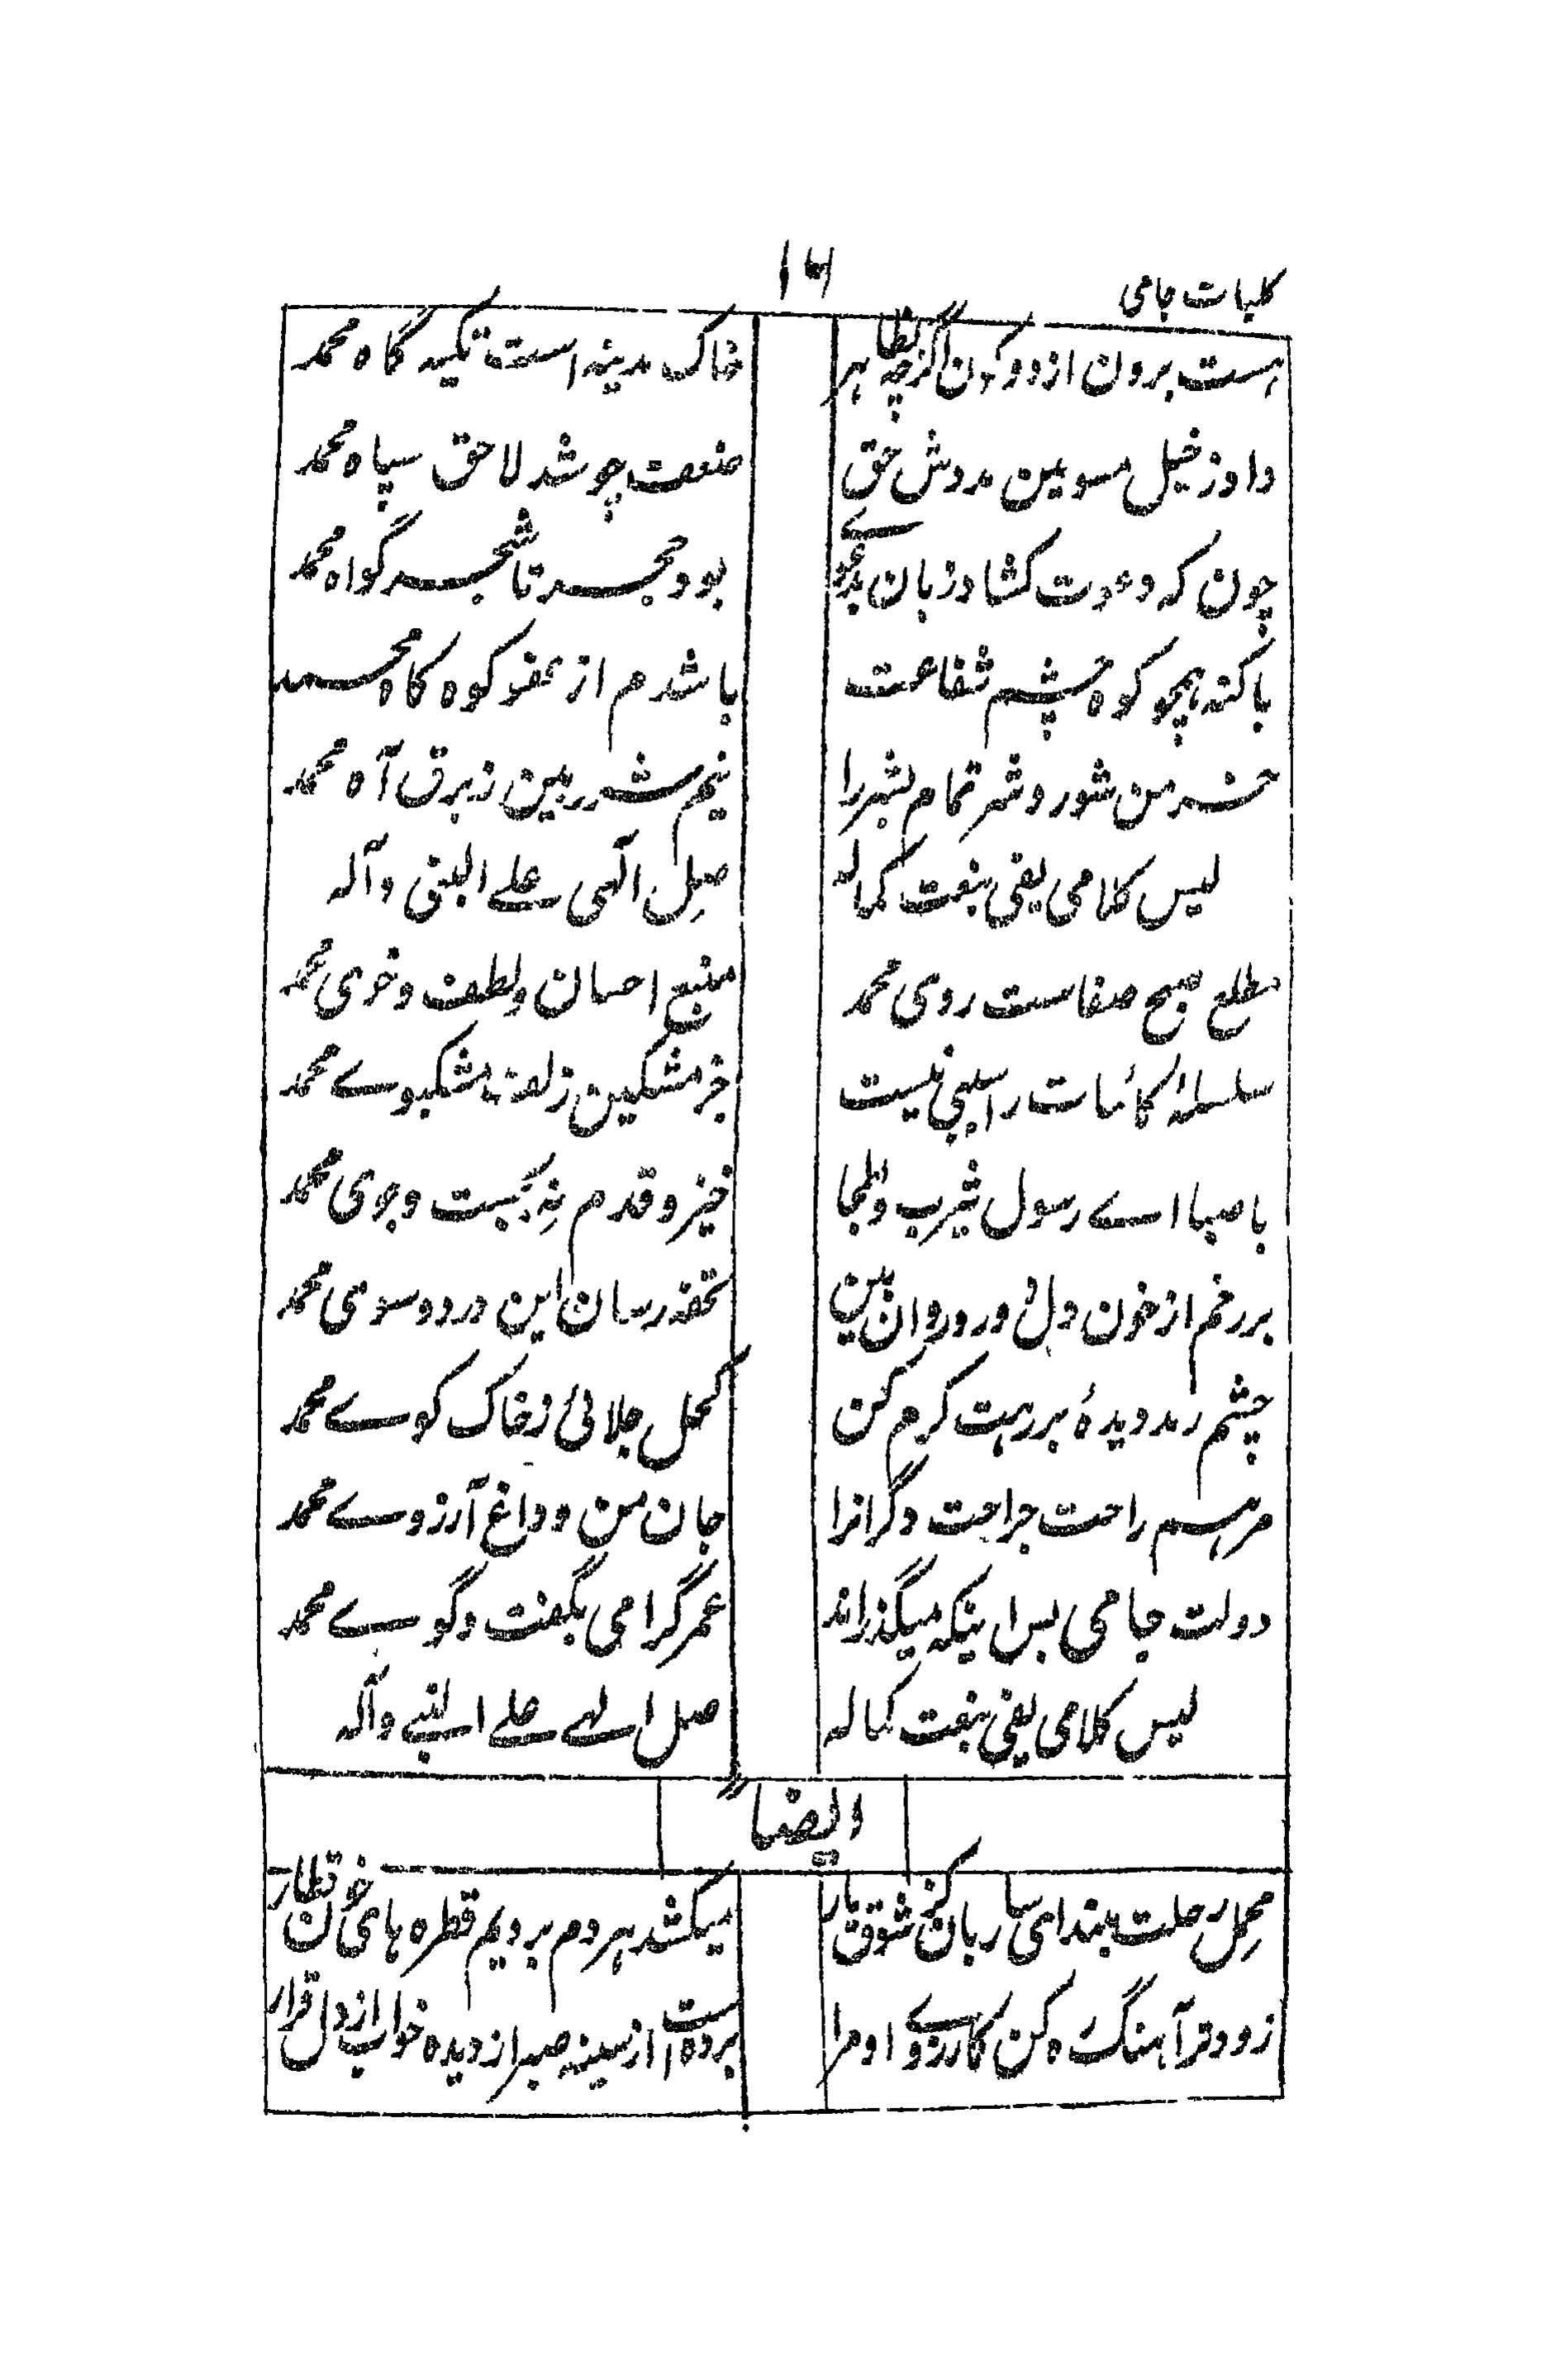 کلیات جامی
۱۶
هست برون از دو کون اگرچه بظاهر
خاک مدینه است تکیه گاه محمد
داد ز خیل مسومین مدوش حق
ضعف چو شد لاحق سپاه محمد
چون که دعوت کشاد زبان
بود حجر تا شجر گواه محمد
با کنه همچو کوه چشم شفاعت
باشدم از عفو کوه کاه محمد
خرمن شور و شر تمام بشر را
نیم شرر بین ز برق آه محمد
لیس کلامی یفی بنعت کماله
صل الهی علی النبی و آله
مطلع صبح صفاست روی محمد
منبع احسان و لطف و خوی محمد
سلسلهٔ کائنات را سببی نیست
جز مشکین زلف مشکبوے محمد
باصبا اے رسول یثرب و بطحا
خیز و قدم نه بجست و جوی محمد
بر رخم از خون دل دو رود روان بین
تحفه رسان این درود سوی محمد
چشم رمد دیدهٔ برهت کرم کن
کحل جلائی ز خاک کوے محمد
مرهم راحت جراحت دگرانرا
جان من و داغ آرزوے محمد
دولت جامی بس اینکه میگذراند
عمر گرامی بگفت وگوے محمد
لیس کلامی یفی بنعت کماله
صل الهے علے النبے و آله
ایضاً
محمل رحلت ببند ای ساربان کز شوق یار
میکشد هر دم برویم قطره های خون قطار
زودتر آهنگ ره کن کارزوے او مرا
برده است از سینه صبر از دیده خواب از دل قرار